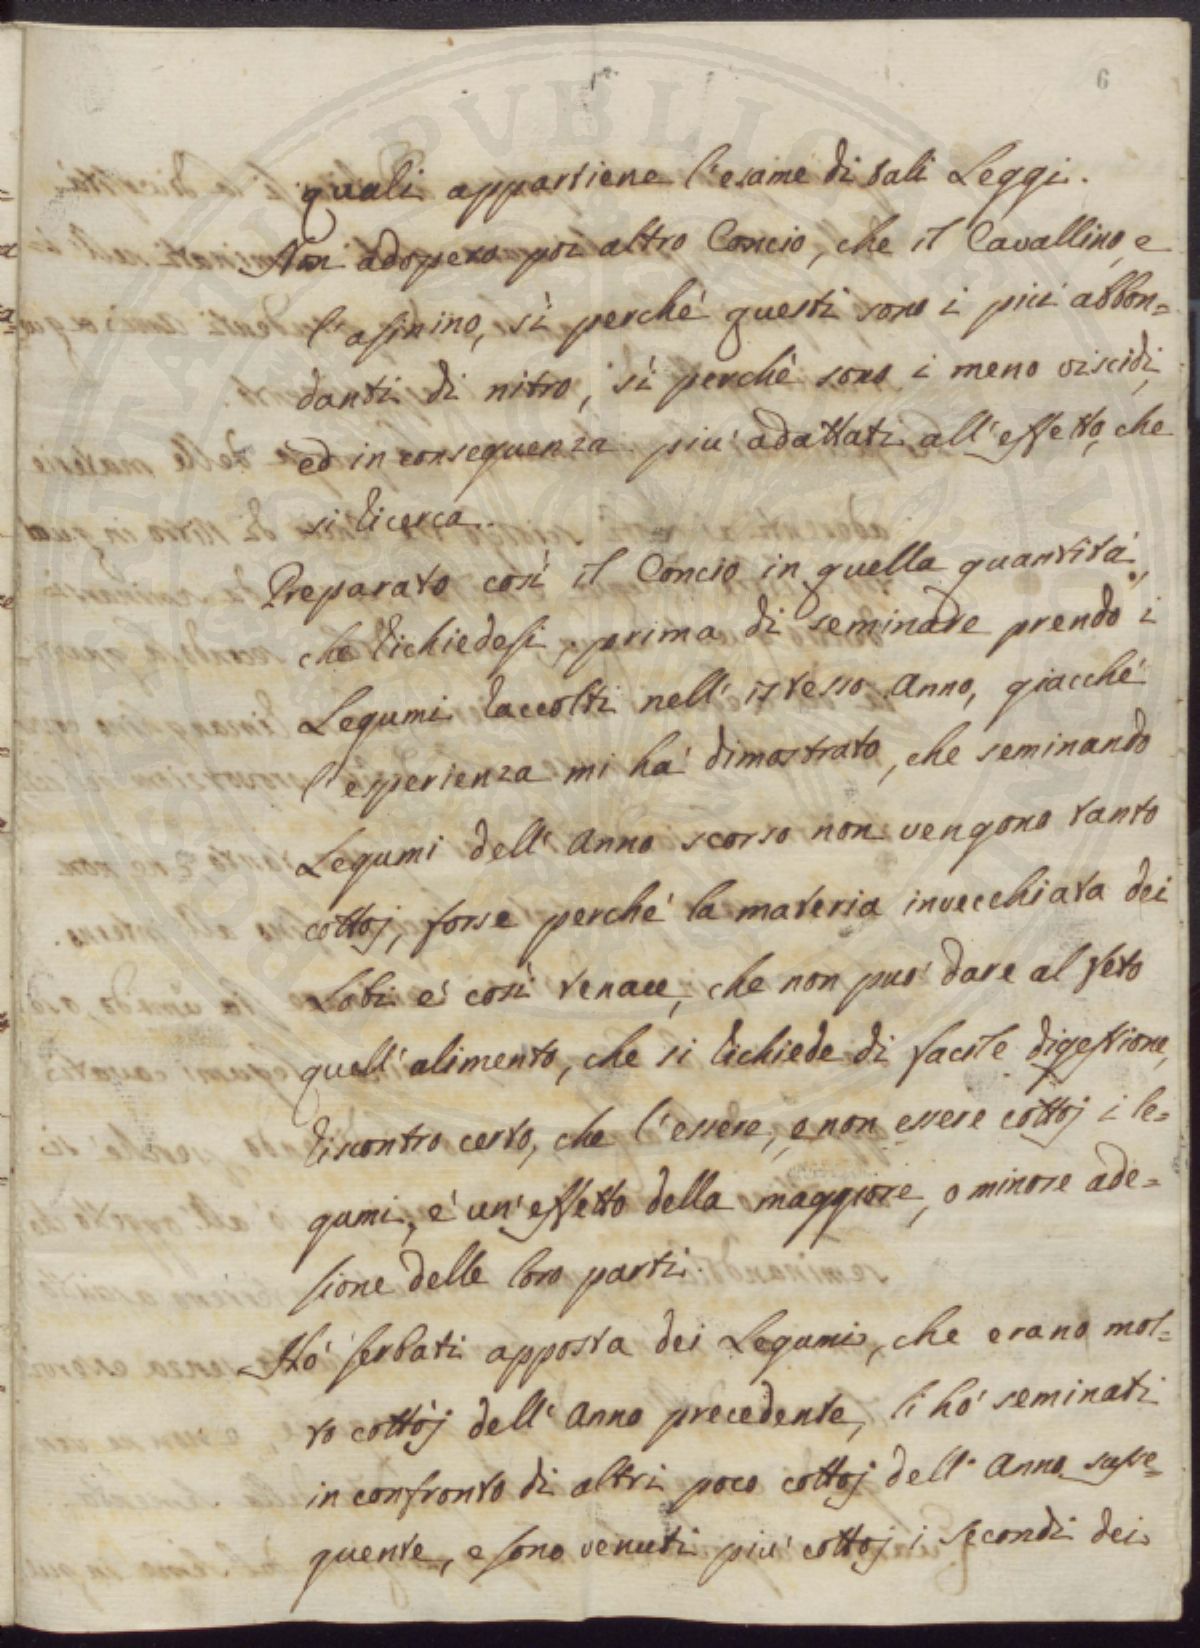 6
quali appartiene l'esame di tali Leggi.
Non adopero poi altro Concio, che il Cavallino, e
l'asinino, sì perchè questi sono i più abbon=
danti di nitro, sì perchè sono i meno viscidi,
ed in conseguenza più adattati all'effetto, che
si ricerca.
Preparato così il Concio in quella quantità,
che richiedesi, prima di seminare prendo i
Legumi raccolti nell'istesso Anno, giacchè
l'esperienza mi hà dimostrato, che seminando
Legumi dell'Anno scorso non vengono tanto
cottoj, forse perchè la materia invecchiata dei
Lobi è così tenace, che non può dare al feto
quell'alimento, che si richiede di facile digestione,
riscontro certo, che l'essere, o non essere cottoj i le=
gumi, è un'effetto della maggiore, o minore ade=
sione delle loro parti.
Hò serbati apposta dei Legumi, che erano mol=
to cottoj dell'Anno precedente, li hò seminati
in confronto di altri poco cottoj dell'Anno susse=
guente, e sono venuti più cottoj i secondi dei